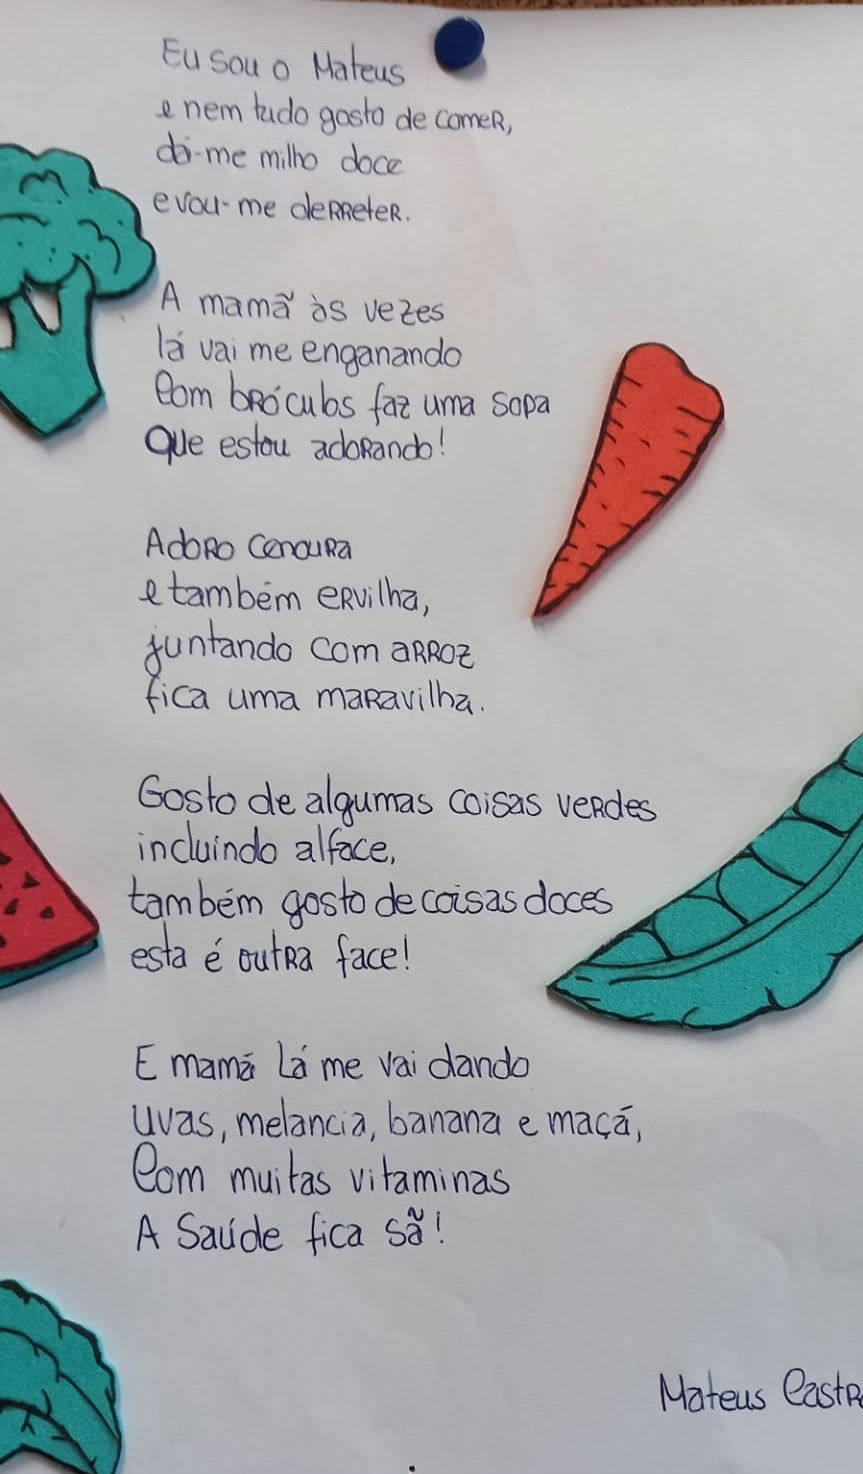 Eu sou o Mateus
e nem tudo gosto de comer,
dá-me milho doce
e vou-me derreter.
A mamã às vezes
lá vai me enganando
Com bróculos faz uma sopa
Que estou adorando!
Adoro cenoura
e também ervilha,
juntando com arroz
fica uma maravilha.
Gosto de algumas coisas verdes
incluindo alface,
também gosto de coisas doces
esta é outra face!
E mamã Lá me vai dando
Uvas, melancia, banana e maçã,
Com muitas vitaminas
A Saúde fica sã!
Mateus